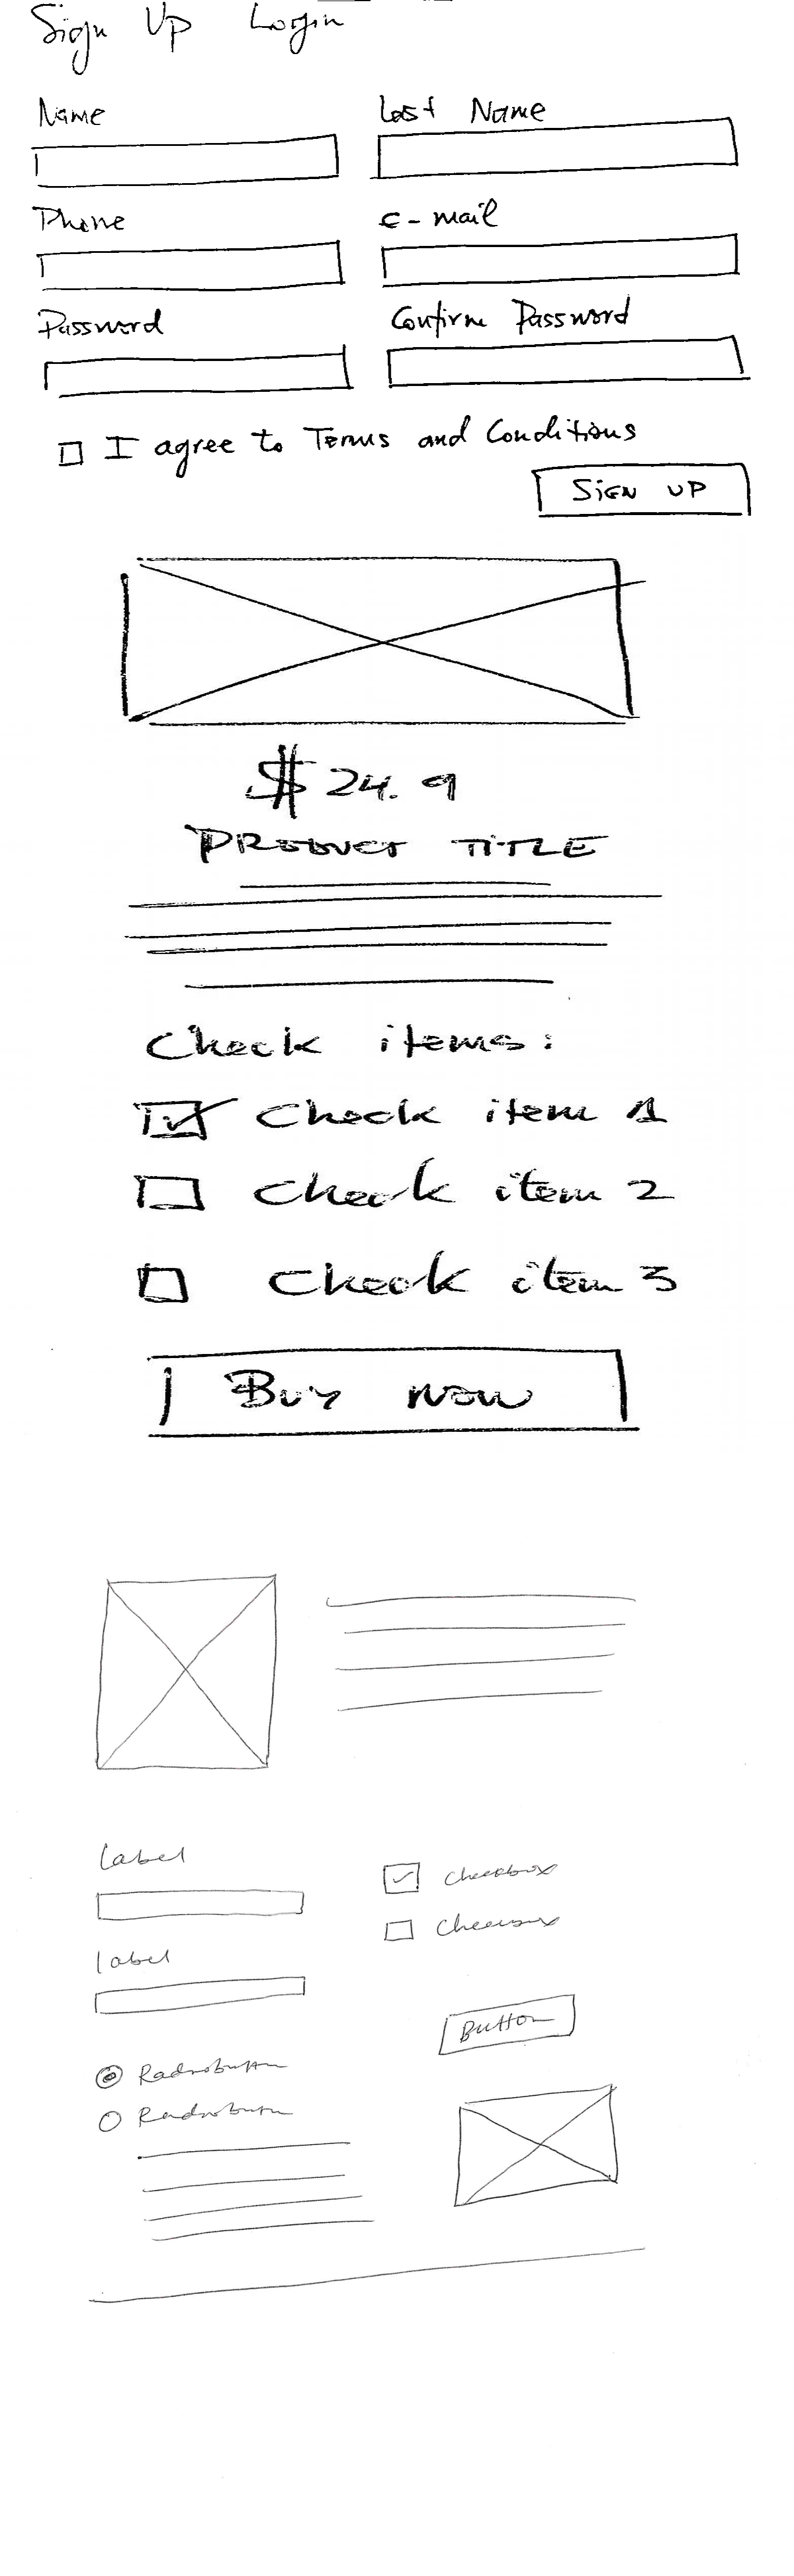 Sign Up Login
Name Last Name
Phone e-mail
Password Confirm Password
I agree to Terms and Conditions
SIGN UP
$24.9
PRODUCT TITLE
Check items:
Check item 1
Check item 2
Check item 3
Buy now
Label
Checkbox
Label
Checkbox
Button
Radiobutton
Radiobutton